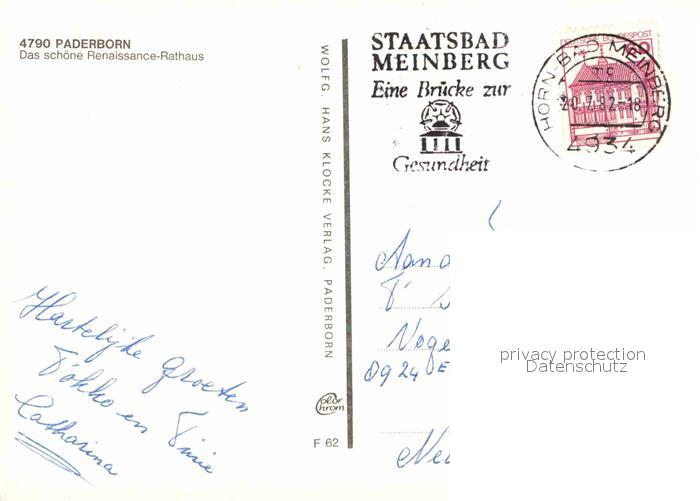 4790 PADERBORN
Das schöne Renaissance-Rathaus
Hartelijke Groeten
Fokko en Tinie
Catharina
WOLFG. HANS KLOCKE VERLAG, PADERBORN
color chrom
F 62
STAATSBAD
MEINBERG
Eine Brücke zur
Gesundheit
DEUTSCHE BUNDESPOST
HORN-BAD MEINBERG
20.7.82-18
4934
Aan
Voge
privacy protection
Datenschutz